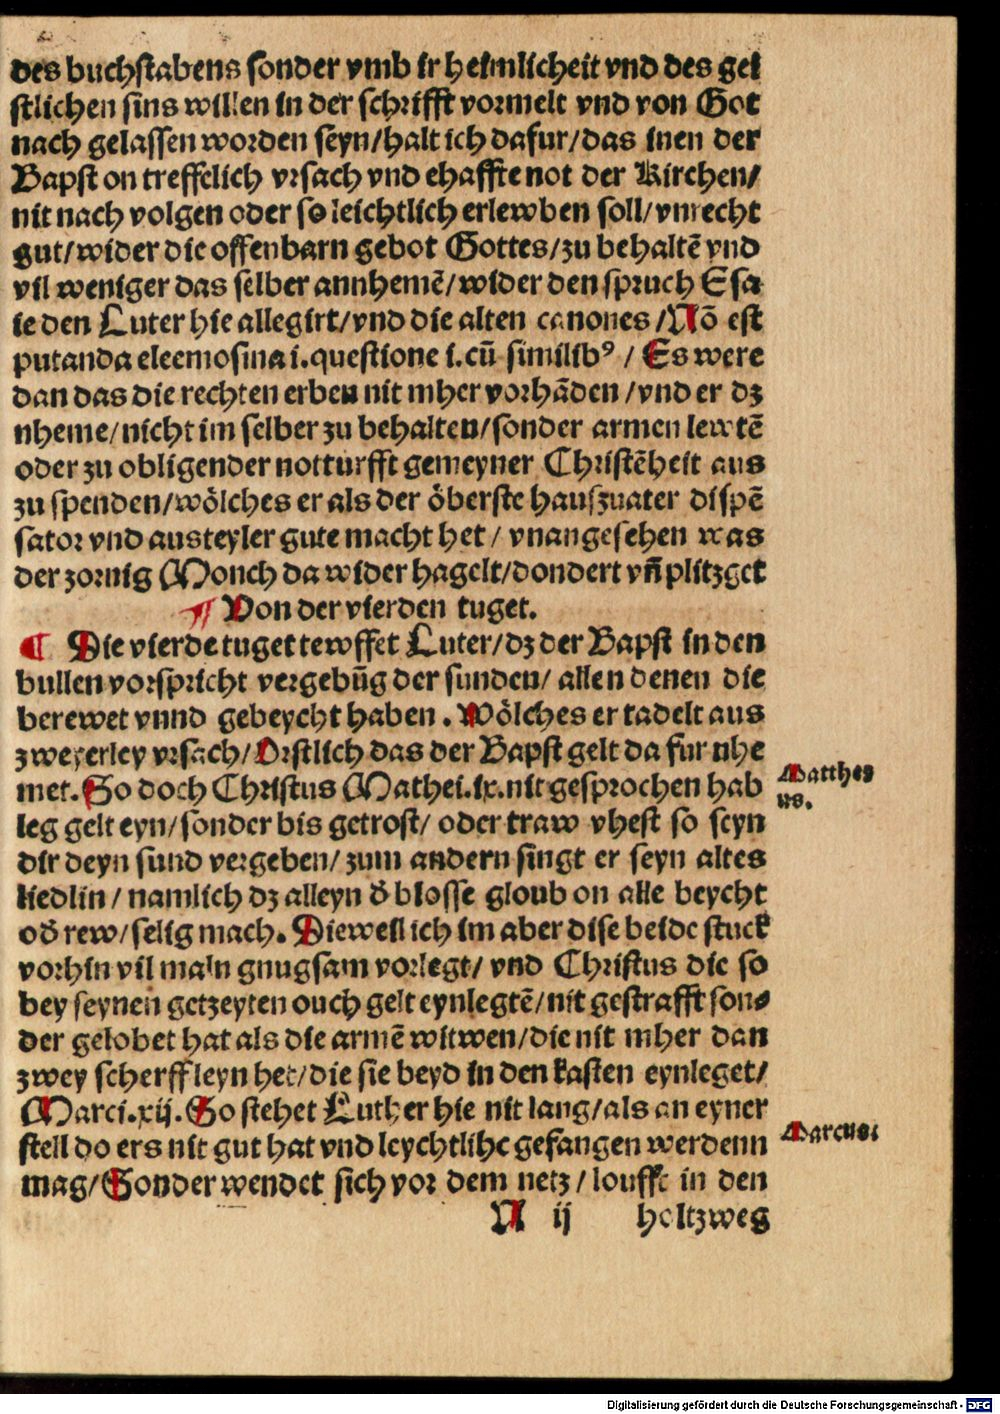 des buchstabens sonder vmb ir heimlicheit vnd des gei
stlichen sins willen in der schrifft vormelt vnd von Got
nach gelassen worden seyn/halt ich dafur/das inen der
Bapst on treffelich vrsach vnd ehaffte not der Kirchen/
nit nach volgen oder so leichtlich erlewben soll/vnrecht
gut/wider die offenbarn gebot Gottes/zu behaltē vnd
vil weniger das selber annhemē/wider den spruch Esa
ie den Luter hie allegirt/vnd die alten canones/Nō est
putanda eleemosina i.questione i.cū similibꝰ/Es were
dan das die rechten erben nit mher vorhāden/vnd er dz
nheme/nicht im selber zu behalten/sonder armen lewtē
oder zu obligender notturfft gemeyner Christēheit aus
zu spenden/wölches er als der öberste hauszuater dispē
sator vnd austeyler gute macht het/vnangesehen was
der zornig Monch da wider hagelt/dondert vn̄ plitzget
¶ Von der vierden tuget.
¶ Die vierde tuget tewffet Luter/dz der Bapst in den
bullen vorspricht vergebūg der sunden/allen denen die
berewet vnnd gebeycht haben. Wölches er tadelt aus
zweyerley vrsach/Orstlich das der Bapst gelt da fur nhe
met. So doch Christus Mathei.ix.nit gesprochen hab
leg gelt eyn/sonder bis getrost/oder traw vhest so seyn
dir deyn sund vergeben/zum andern singt er seyn altes
liedlin/namlich dz alleyn d̄ blosse gloub on alle beycht
od̄ rew/selig mach. Dieweil ich im aber dise beide stuck
vorhin vil maln gnugsam vorlegt/vnd Christus die so
bey seynen getzeyten ouch gelt eynlegtē/nit gestrafft son⸗
der gelobet hat als die armē witwen/die nit mher dan
zwey scherffleyn het/die sie beyd in den kasten eynleget/
Marci.xij. So stehet Luther hie nit lang/als an eyner
stell do ers nit gut hat vnd leychtlihc gefangen werdenn
mag/Sonder wendet sich vor dem netz/louffe in den
N ij holtzweg
Mattheu
us.
Marcus:
Digitalisierung gefördert durch die Deutsche Forschungsgemeinschaft - DFG